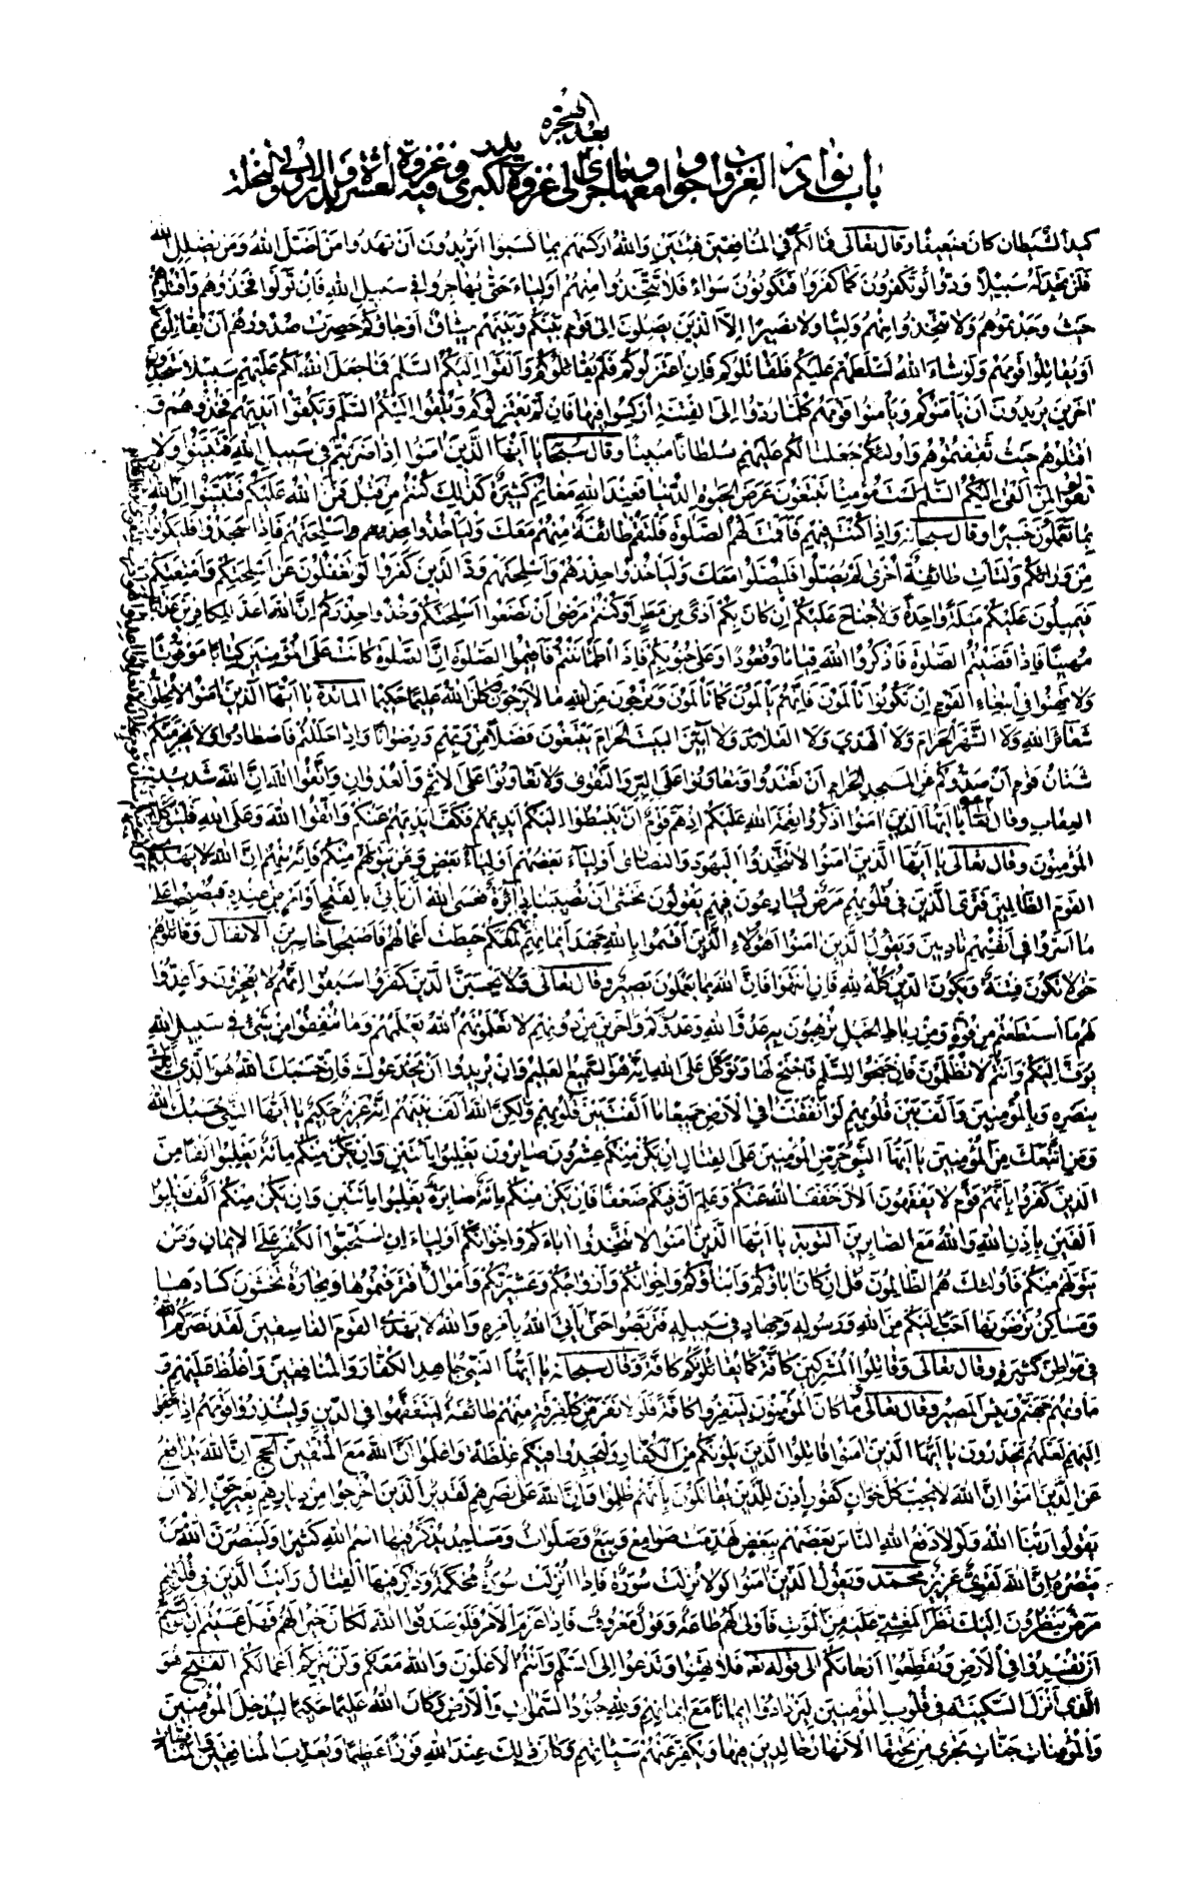 بعد الهجرة
باب نوادر الغزوات وجوامعها وما جرى إلى غزوة بدر الكبرى وفيه غزوة العشيرة وبدر الأولى والنخلة
كيد الشيطان كان ضعيفا وقال تعالى فما لكم في المنافقين فئتين والله اركسهم بما كسبوا اتريدون ان تهدوا من اضل الله ومن يضلل الله
فلن تجد له سبيلا ودوا لو تكفرون كما كفروا فتكونون سواء فلا تتخذوا منهم اولياء حتى يهاجروا في سبيل الله فان تولوا فخذوهم واقتلوهم
حيث وجدتموهم ولا تتخذوا منهم وليا ولا نصيرا الا الذين يصلون الى قوم بينكم وبينهم ميثاق او جاؤكم حصرت صدورهم ان يقاتلوكم
او يقاتلوا قومهم ولو شاء الله لسلطهم عليكم فلقاتلوكم فان اعتزلوكم فلم يقاتلوكم والقوا اليكم السلم فما جعل الله لكم عليهم سبيلا ستجدون
اخرين يريدون ان يأمنوكم ويأمنوا قومهم كلما ردوا الى الفتنة اركسوا فيها فان لم يعتزلوكم ويلقوا اليكم السلم ويكفوا ايديهم فخذوهم و
اقتلوهم حيث ثقفتموهم واولئكم جعلنا لكم عليهم سلطانا مبينا وقال سبحانه يا ايها الذين امنوا اذا ضربتم في سبيل الله فتبينوا ولا
تقولوا لمن القى اليكم السلم لست مؤمنا تبتغون عرض الحيوة الدنيا فعند الله مغانم كثيرة كذلك كنتم من قبل فمن الله عليكم فتبينوا ان الله
بما تعملون خبيرا وقال سبحانه واذا كنت فيهم فاقمت لهم الصلوة فلتقم طائفة منهم معك وليأخذوا اسلحتهم فاذا سجدوا فليكونوا
من ورائكم ولتأت طائفة اخرى لم يصلوا فليصلوا معك وليأخذوا حذرهم واسلحتهم ود الذين كفروا لو تغفلون عن اسلحتكم وامتعتكم
فيميلون عليكم ميلة واحدة ولا جناح عليكم ان كان بكم اذى من مطر او كنتم مرضى ان تضعوا اسلحتكم وخذوا حذركم ان الله اعد للكافرين عذابا
مهينا فاذا قضيتم الصلوة فاذكروا الله قياما وقعودا وعلى جنوبكم فاذا اطمأننتم فاقيموا الصلوة ان الصلوة كانت على المؤمنين كتابا موقوتا
ولا تهنوا في ابتغاء القوم ان تكونوا تألمون فانهم يألمون كما تألمون وترجون من الله ما لا يرجون وكان الله عليما حكيما المائدة يا ايها الذين امنوا لا تحلوا
شعائر الله ولا الشهر الحرام ولا الهدي ولا القلائد ولا آمين البيت الحرام يبتغون فضلا من ربهم ورضوانا واذا حللتم فاصطادوا ولا يجرمنكم
شنئان قوم ان صدوكم عن المسجد الحرام ان تعتدوا وتعاونوا على البر والتقوى ولا تعاونوا على الاثم والعدوان واتقوا الله ان الله شديد
العقاب وقال تعالى يا ايها الذين امنوا اذكروا نعمة الله عليكم اذ هم قوم ان يبسطوا اليكم ايديهم فكف ايديهم عنكم واتقوا الله وعلى الله فليتوكل
المؤمنون وقال تعالى يا ايها الذين امنوا لا تتخذوا اليهود والنصارى اولياء بعضهم اولياء بعض ومن يتولهم منكم فانه منهم ان الله لا يهدي
القوم الظالمين فترى الذين في قلوبهم مرض يسارعون فيهم يقولون نخشى ان تصيبنا دائرة فعسى الله ان يأتي بالفتح او امر من عنده فيصبحوا على
ما اسروا في انفسهم نادمين ويقول الذين امنوا اهؤلاء الذين اقسموا بالله جهد ايمانهم انهم لمعكم حبطت اعمالهم فاصبحوا خاسرين الانفال وقاتلوهم
حتى لا تكون فتنة ويكون الدين كله لله فان انتهوا فان الله بما يعملون بصير وقال تعالى ولا يحسبن الذين كفروا سبقوا انهم لا يعجزون واعدوا
لهم ما استطعتم من قوة ومن رباط الخيل ترهبون به عدو الله وعدوكم واخرين من دونهم لا تعلمونهم الله يعلمهم وما تنفقوا من شيء في سبيل الله
يوف اليكم وانتم لا تظلمون فان جنحوا للسلم فاجنح لها وتوكل على الله انه هو السميع العليم وان يريدوا ان يخدعوك فان حسبك الله هو الذي ايدك
بنصره وبالمؤمنين والف بين قلوبهم لو انفقت ما في الارض جميعا ما الفت بين قلوبهم ولكن الله الف بينهم انه عزيز حكيم يا ايها النبي حسبك الله
ومن اتبعك من المؤمنين يا ايها النبي حرض المؤمنين على القتال ان يكن منكم عشرون صابرون يغلبوا مأتين وان يكن منكم مائة يغلبوا الفا من
الذين كفروا بانهم قوم لا يفقهون الان خفف الله عنكم وعلم ان فيكم ضعفا فان يكن منكم مائة صابرة يغلبوا مأتين وان يكن منكم الف يغلبوا
الفين باذن الله والله مع الصابرين التوبة يا ايها الذين امنوا لا تتخذوا اباءكم واخوانكم اولياء ان استحبوا الكفر على الايمان ومن
يتولهم منكم فاولئك هم الظالمون قل ان كان اباؤكم وابناؤكم واخوانكم وازواجكم وعشيرتكم واموال اقترفتموها وتجارة تخشون كسادها
ومساكن ترضونها احب اليكم من الله ورسوله وجهاد في سبيله فتربصوا حتى يأتي الله بامره والله لا يهدي القوم الفاسقين لقد نصركم الله
في مواطن كثيرة وقال تعالى وقاتلوا المشركين كافة كما يقاتلونكم كافة وقال سبحانه يا ايها النبي جاهد الكفار والمنافقين واغلظ عليهم و
مأويهم جهنم وبئس المصير وقال تعالى وما كان المؤمنون لينفروا كافة فلولا نفر من كل فرقة منهم طائفة ليتفقهوا في الدين ولينذروا قومهم اذا رجعوا
اليهم لعلهم يحذرون يا ايها الذين امنوا قاتلوا الذين يلونكم من الكفار وليجدوا فيكم غلظة واعلموا ان الله مع المتقين الحج ان الله يدافع
عن الذين امنوا ان الله لا يحب كل خوان كفور اذن للذين يقاتلون بانهم ظلموا وان الله على نصرهم لقدير الذين اخرجوا من ديارهم بغير حق الا ان
يقولوا ربنا الله ولولا دفع الله الناس بعضهم ببعض لهدمت صوامع وبيع وصلوات ومساجد يذكر فيها اسم الله كثيرا ولينصرن الله من
ينصره ان الله لقوي عزيز محمد ويقول الذين امنوا لولا نزلت سورة فاذا انزلت سورة محكمة وذكر فيها القتال رأيت الذين في قلوبهم
مرض ينظرون اليك نظر المغشي عليه من الموت فاولى لهم طاعة وقول معروف فاذا عزم الامر فلو صدقوا الله لكان خيرا لهم فهل عسيتم ان توليتم
ان تفسدوا في الارض وتقطعوا ارحامكم الى قوله تعالى فلا تهنوا وتدعوا الى السلم وانتم الاعلون والله معكم ولن يتركم اعمالكم الفتح هو
الذي انزل السكينة في قلوب المؤمنين ليزدادوا ايمانا مع ايمانهم ولله جنود السموات والارض وكان الله عليما حكيما ليدخل المؤمنين
والمؤمنات جنات تجري من تحتها الانهار خالدين فيها ويكفر عنهم سيئاتهم وكان ذلك عند الله فوزا عظيما ويعذب المنافقين والمنافقات